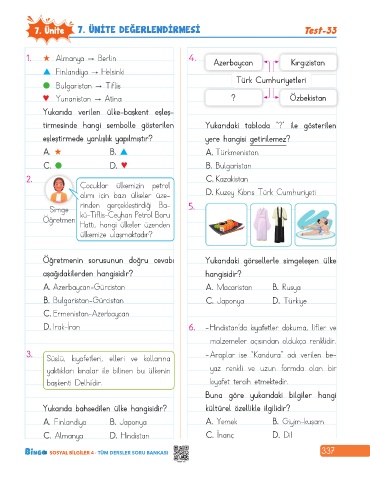 7. Ünite 7. ÜNİTE DEĞERLENDİRMESİ Test-33
1. ★ Almanya → Berlin
▲ Finlandiya → Helsinki
● Bulgaristan → Tiflis
♥ Yunanistan → Atina
Yukarıda verilen ülke-başkent eşleş-
tirmesinde hangi sembolle gösterilen
eşleştirmede yanlışlık yapılmıştır?
A. ★ B. ▲
C. ● D. ♥
2.
Simge
Öğretmen
Çocuklar ülkemizin petrol
alımı için bazı ülkeler üze-
rinden gerçekleştirdiği Ba-
kü-Tiflis-Ceyhan Petrol Boru
Hattı, hangi ülkeler üzerinden
ülkemize ulaşmaktadır?
Öğretmenin sorusunun doğru cevabı
aşağıdakilerden hangisidir?
A. Azerbaycan-Gürcistan
B. Bulgaristan-Gürcistan
C. Ermenistan-Azerbaycan
D. Irak-İran
3.
Süslü, kıyafetleri, elleri ve kollarına
yaktıkları kınalar ile bilinen bu ülkenin
başkenti Delhidir.
Yukarıda bahsedilen ülke hangisidir?
A. Finlandiya B. Japonya
C. Almanya D. Hindistan
4.
Azerbaycan Kırgızistan
Türk Cumhuriyetleri
? Özbekistan
Yukarıdaki tabloda "?" ile gösterilen
yere hangisi getirilemez?
A. Türkmenistan
B. Bulgaristan
C. Kazakistan
D. Kuzey Kıbrıs Türk Cumhuriyeti
5.
Yukarıdaki görsellerle simgeleşen ülke
hangisidir?
A. Macaristan B. Rusya
C. Japonya D. Türkiye
6. -Hindistan'da kıyafetler dokuma, lifler ve
malzemeler açısından oldukça renklidir.
-Araplar ise "Kandura" adı verilen be-
yaz renkli ve uzun formda olan bir
kıyafet tercih etmektedir.
Buna göre yukarıdaki bilgiler hangi
kültürel özellikle ilgilidir?
A. Yemek B. Giyim-kuşam
C. İnanç D. Dil
BiNGO SOSYAL BİLGİLER 4 - TÜM DERSLER SORU BANKASI
337